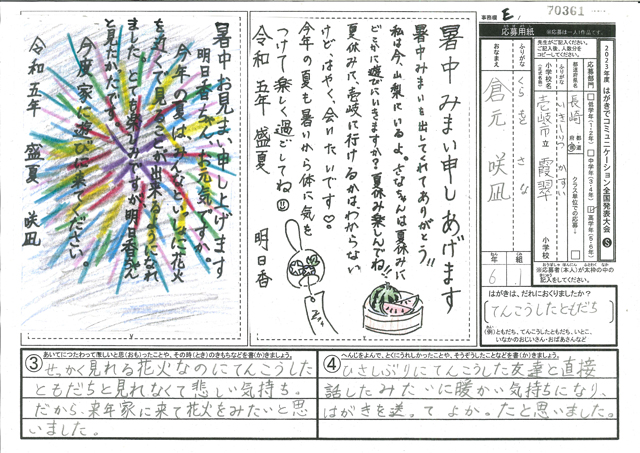 事務欄 E1
70361
応募用紙
※応募は一人1作品です。
先生がご記入ください。
ご記入後、人数分を
コピーしてください。
2023年度 はがきでコミュニケーション全国発表大会 S
応募部門
低学年(1・2年)
中学年(3・4年)
高学年(5・6年)
都道府県名
長崎
都 道 府 県
クラス単位での応募
小学校名
(正式名称)
ふりがな
壱岐市立 霞翠
小学校
ふりがな
くらもと さな
おなまえ
倉元 咲凪
年 6
組 1
※応募者(本人)が太枠の中の
記入をしてください。
はがきは、だれにおくりましたか?
(てんこうしたともだち)
(例)ともだち、てんこうしたともだち、いとこ、
いなかのおじいさん・おばあさんなど
暑中みまい申しあげます
暑中みまいを出してくれてありがとう!!
私は今、山梨にいるよ。さなちゃんは夏休みに
どこかに遊びにいきますか?夏休み楽しんでね!!
夏休みに、壱岐に行けるかはわからない
けど、はやく、会いたいです♡。
今年の夏も暑いから体に気を
つけて楽しく過ごしてね!!
令和五年 盛夏 明日香
暑中お見まい申し上げます
明日香ちゃん、お元気ですか。
今年の夏は、みんなといっしょに花火
を近くで見ることが出来るようになり
ました。とても楽しみですが明日香さん
と見たかったです。
今度家に遊びに来てください。
令和五年 盛夏 咲凪
③ あいてにつたわって欲しいと思(おも)ったことや、その時(とき)のきもちなどを書(か)きましょう。
せっかく見れる花火なのにてんこうした
ともだちと見れなくて悲しい気持ち。
だから、来年家に来て花火をみたいと思
いました。
④ へんじをよんで、とくにうれしかったことや、そうぞうしたことなどを書(か)きましょう。
ひさしぶりにてんこうした友達と直接
話したみたいに暖かい気持ちになり、
はがきを送ってよかったと思いました。